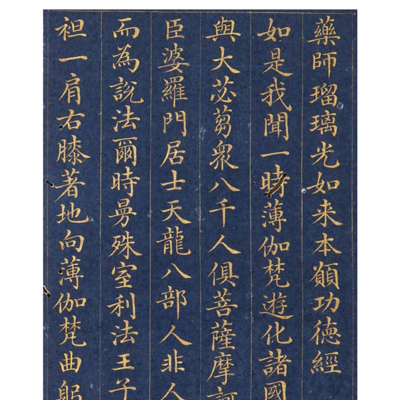 藥師瑠璃光如来本願功德經
如是我聞一時薄伽梵遊化諸國
與大苾芻衆八千人俱菩薩摩訶
臣婆羅門居士天龍八部人非人
而為說法爾時曼殊室利法王子
袒一肩右膝著地向薄伽梵曲躬